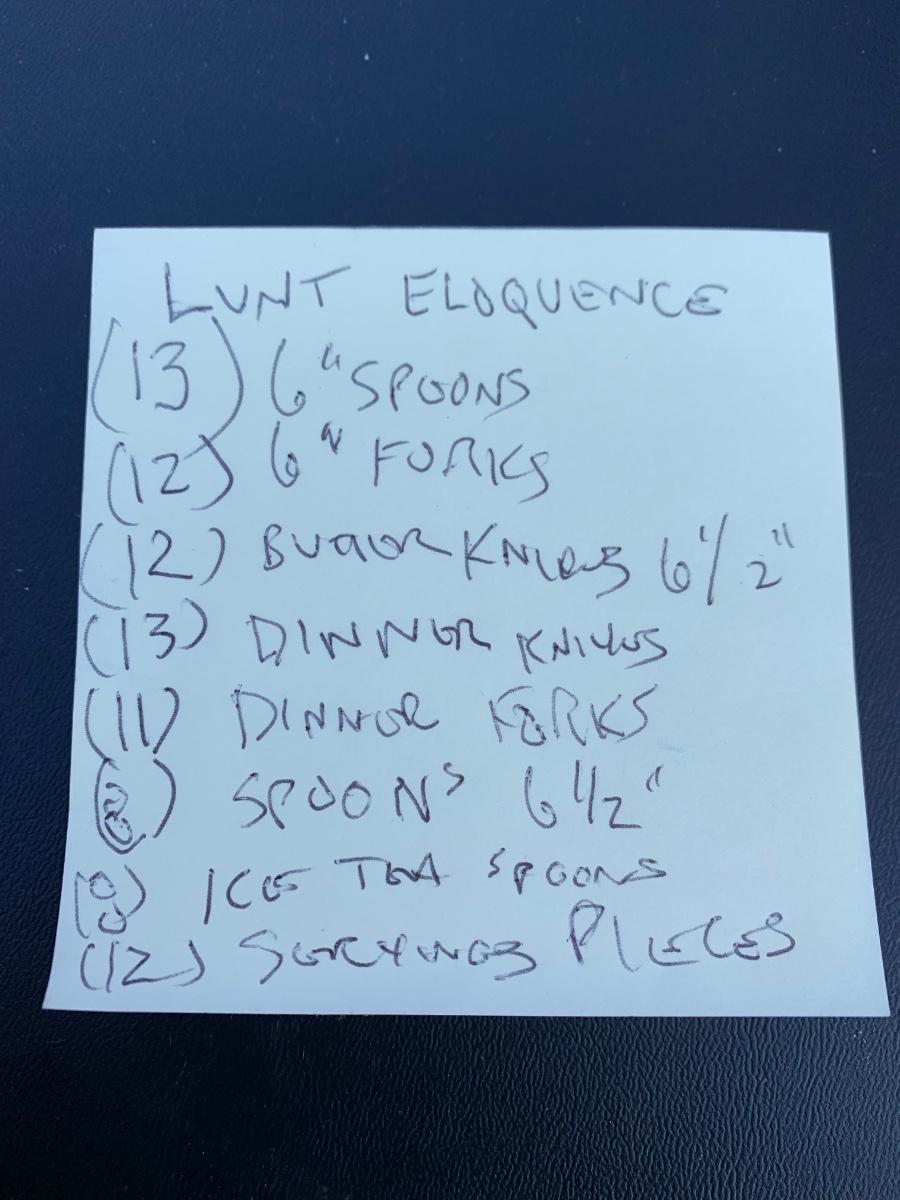 LUNT ELOQUENCE
(13) 6" SPOONS
(12) 6" FORKS
(12) BUTTER KNIVES 6 1/2"
(13) DINNER KNIVES
(11) DINNER FORKS
(8) SPOONS 6 1/2"
(8) ICE TEA SPOONS
(12) SERVING PIECES